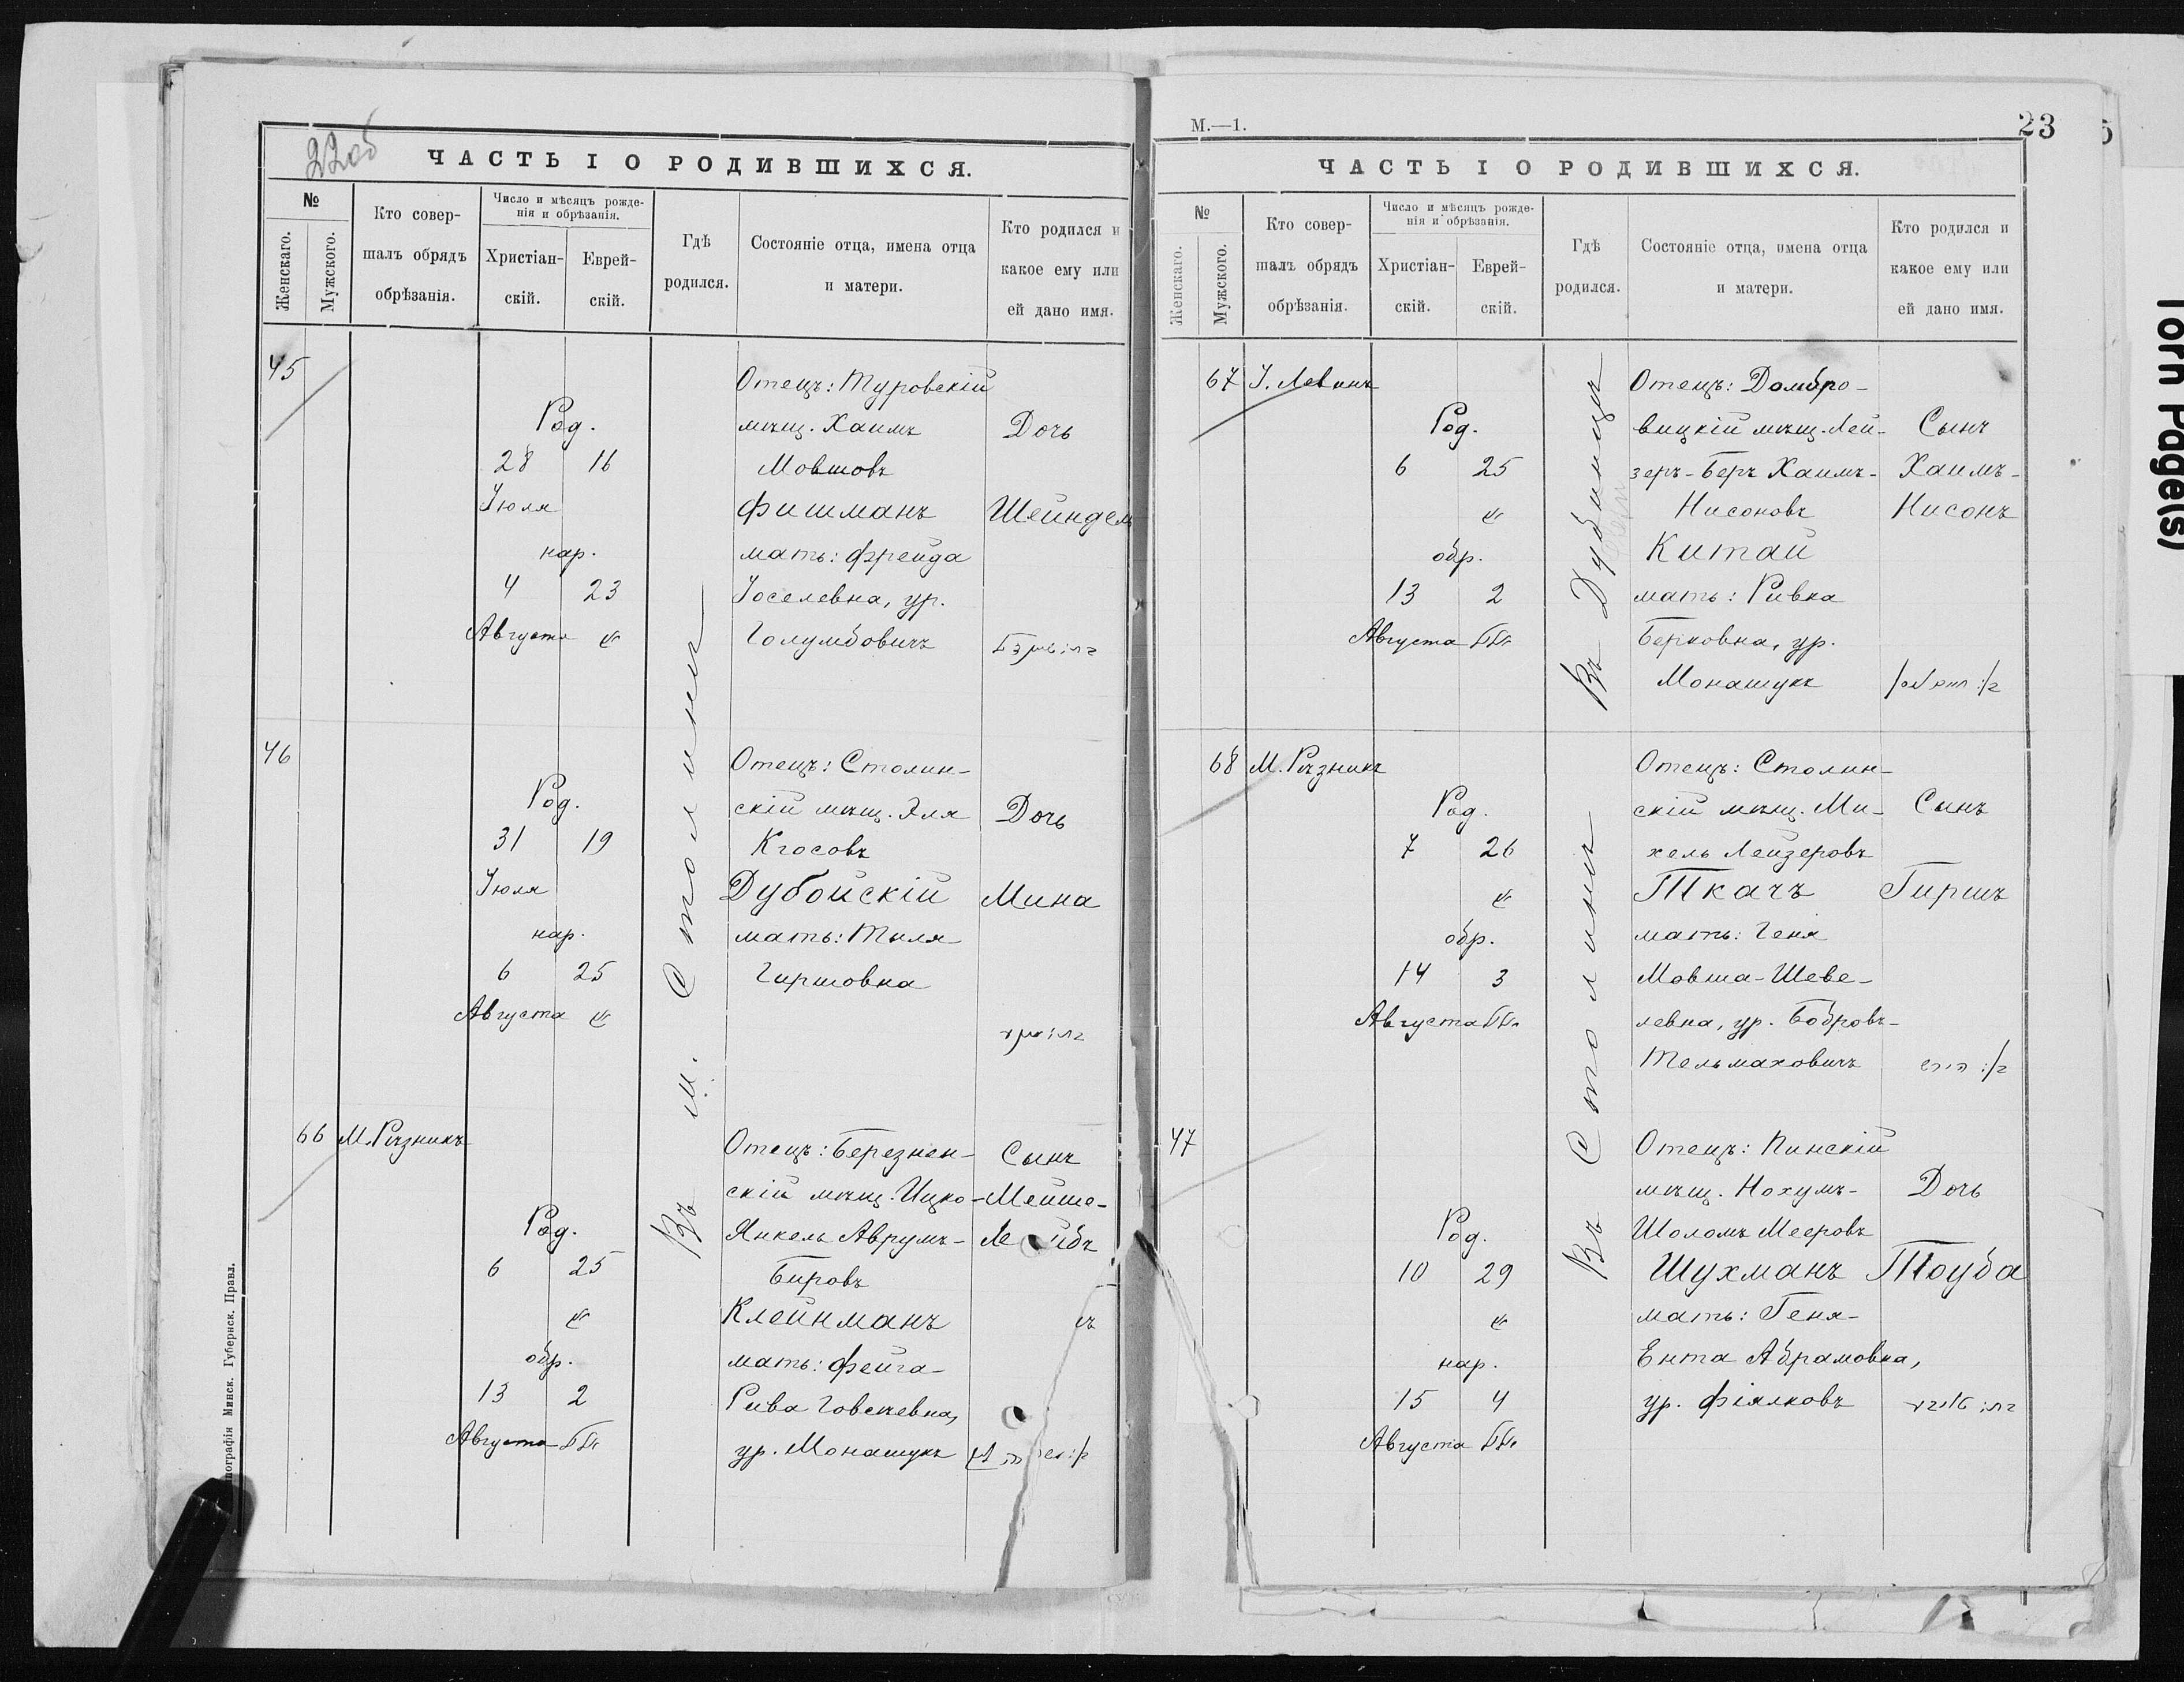 22об
ЧАСТЬ I О РОДИВШИХСЯ.
№
Женскаго.
Мужского.
Кто совер-
шалъ обрядъ
обрѣзанія.
Число и мѣсяцъ рожде-
нія и обрѣзанія.
Христіан-
скій.
Еврей-
скій.
Гдѣ
родился.
Состояніе отца, имена отца
и матери.
Кто родился и
какое ему или
ей дано имя.
45
Род.
28 16
Іюля
нар.
4 23
Августа
Отецъ: Туровскій
мѣщ. Хаимъ
Мовшовъ
Фишманъ
мать: Фрейда
Іоселевна, ур.
Голумбовичъ
Дочь
Шейндель
46
Род.
31 19
Іюля
нар.
6 25
Августа
Отецъ: Столин-
скій мѣщ. Эля
Кгосовъ
Дубойскій
мать: Тыля
Гиршовна
Дочь
Мина
Въ м. Столинѣ
66 М. Рѣзникъ
Род.
6 25
обр.
13 2
Августа
Отецъ: Березнен-
скій мѣщ. Ицко-
Янкель Аврумъ-
Беровъ
Клейнманъ
мать: Фейга-
Рива Говсѣевна,
ур. Монашукъ
Сынъ
Мейше-
Лейбъ
Типографія Минск. Губернск. Правл.
М.—1.
23
ЧАСТЬ I О РОДИВШИХСЯ.
№
Женскаго.
Мужского.
Кто совер-
шалъ обрядъ
обрѣзанія.
Число и мѣсяцъ рожде-
нія и обрѣзанія.
Христіан-
скій.
Еврей-
скій.
Гдѣ
родился.
Состояніе отца, имена отца
и матери.
Кто родился и
какое ему или
ей дано имя.
67 І. Левинъ
Род.
6 25
обр.
13 2
Августа
Въ Дубинцѣ
Отецъ: Домбро-
вицкій мѣщ. Лей-
зеръ-Беръ Хаимъ-
Нисоновъ
Китай
мать: Ривка
Берковна, ур.
Монашукъ
Сынъ
Хаимъ-
Нисонъ
68 М. Рѣзникъ
Род.
7 26
обр.
14 3
Августа
Отецъ: Столин-
скій мѣщ. Ми-
хель Лейзеровъ
Ткачъ
мать: Геня
Мовша-Шеве-
левна, ур. Бобровъ-
Тельмаховичъ
Сынъ
Гиршъ
Въ Столинѣ
47
Род.
10 29
нар.
15 4
Августа
Отецъ: Пинскій
мѣщ. Нохумъ-
Шоломъ Мееровъ
Шухманъ
мать: Геня-
Ента Абрамовна,
ур. Фіялковъ
Дочь
Тоуба
Torn Page(s)